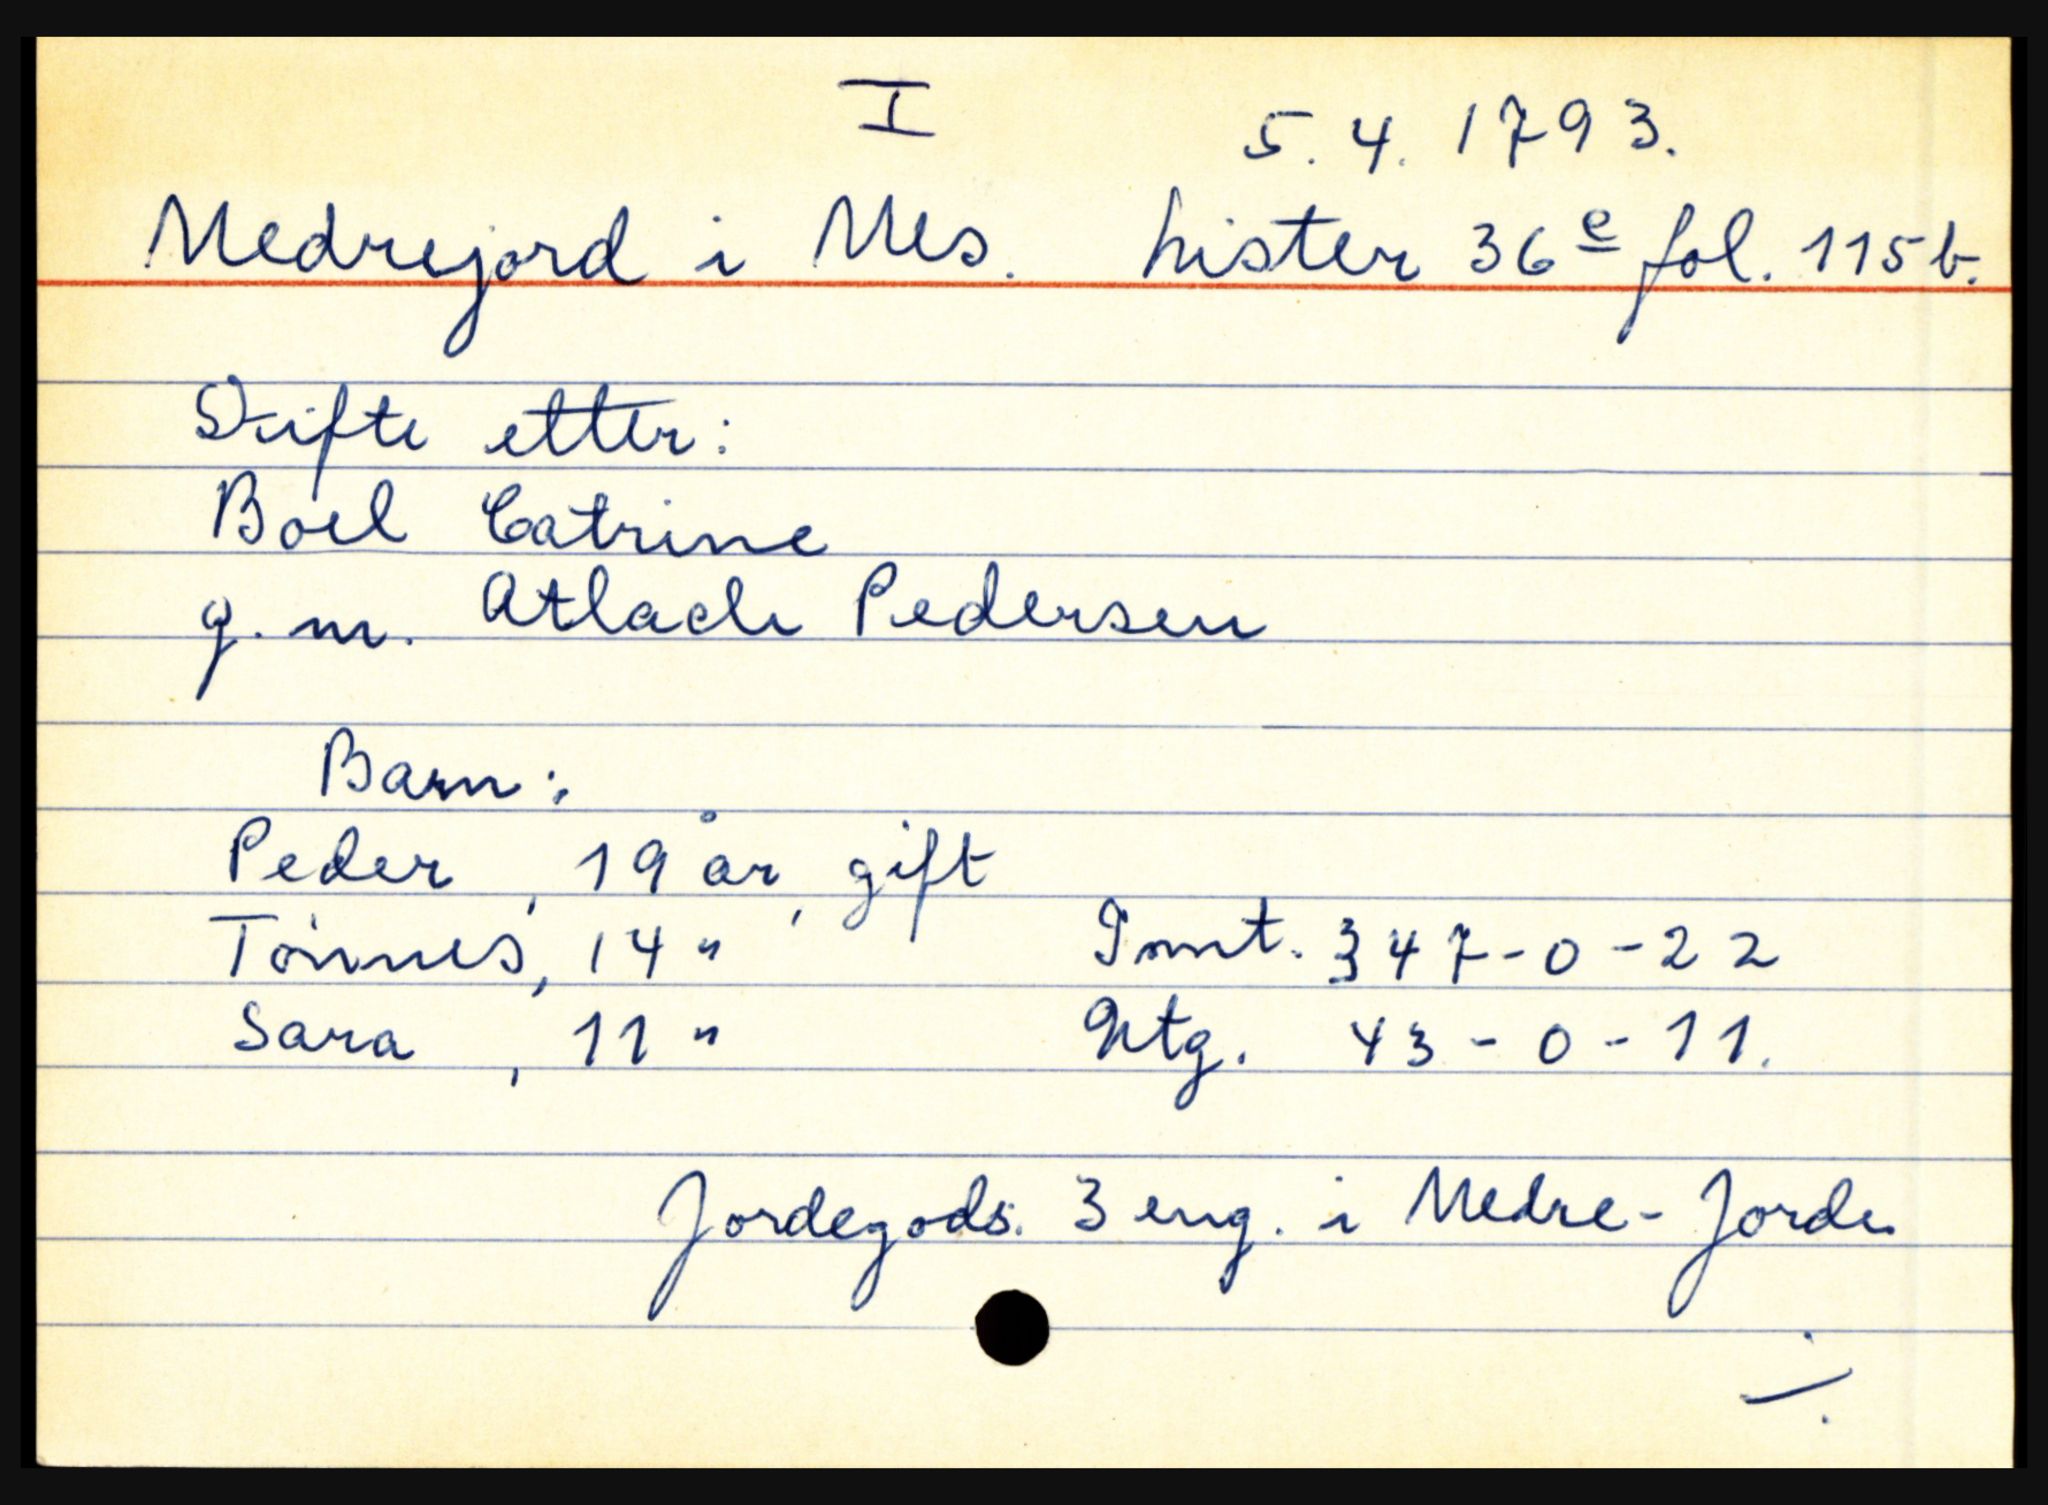 I 5.4.1793.
Nedrejord i Nes. Lister 36 e fol. 115 b.
Skifte etter:
Boel Catrine
g. m. Atlach Pedersen
Barn:
Peder, 19 år, gift
Tønnes, 14 " Innt. 347-0-22
Sara, 11 " Utg. 43-0-11.
Jordegods. 3 eng. i Nedre-Jorde